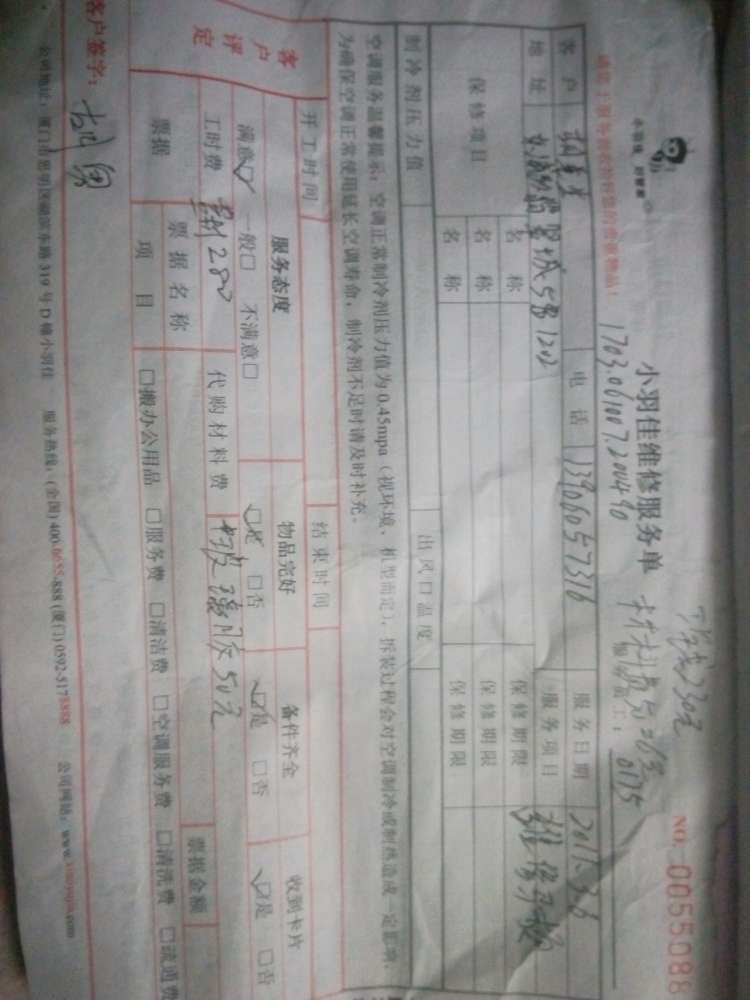 小羽佳维修服务单
NO. 0055088
1703061007200490
0175
客户
电话 13906057316
服务日期 2017.3.6
地址
翠城5号1202
服务项目 维修
保修项目
名称
保修期限
名称
保修期限
名称
保修期限
制冷剂压力值
出风口温度
空调服务温馨提示:空调正常制冷剂压力值为0.45mpa(视环境、机型而定),拆装过程会对空调制冷或制热造成一定影响,
为确保空调正常使用延长空调寿命,制冷剂不足时请及时补充。
开工时间
结束时间
客户评定
服务态度
物品完好
备件齐全
收到卡片
满意☑ 一般□ 不满意□
☑是 □否
☑是 □否
☑是 □否
工时费 280
代购材料费 玻璃胶50元
票据
票据名称
票据金额
项目
□搬办公用品 □服务费 □清洁费 □空调服务费 □清洗费 □疏通费
客户签字:
公司地址:厦门市思明区 319号D幢小羽佳 服务热线:(全国)400-6655-888(厦门)0592-5178888 公司网站:www.